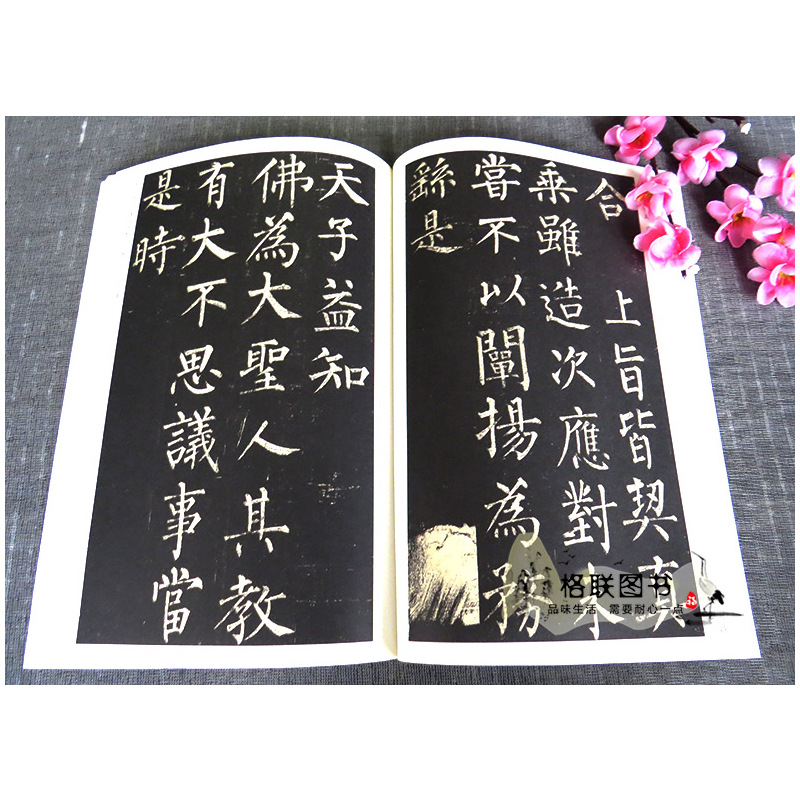 合 上旨皆契真
乘雖造次應對未
嘗不以闡揚為務
繇是
天子益知
佛為大聖人其教
有大不思議事當
是時
格联图书
品味生活 需要耐心一点